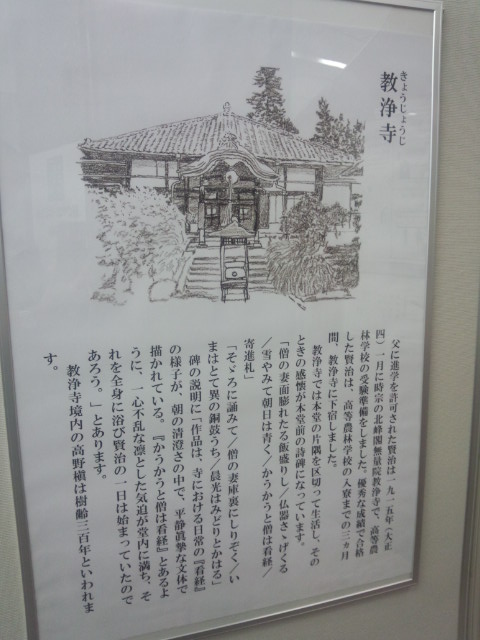 きょうじょうじ
教浄寺
父に進学を許可された賢治は一九一五年（大正
四）一月に時宗の北峰閣無量院教浄寺で、高等農
林学校の受験準備をしました。優秀な成績で合格
した賢治は、高等農林学校の入寮までの三ヵ月
間、教浄寺に下宿しました。
教浄寺では本堂の片隅を区切って生活し、その
ときの感懐が本堂前の詩碑になっています。
「僧の妻面膨れたる飯盛りし／仏器さゝげくる
／雪やみて朝日は青く／かうかうと僧は看経／
寄進札」
「そゞろに誦みて／僧の妻庫裏にしりぞく／い
まはとて異の銅鼓うち／晨光はみどりとかはる」
碑の説明に「作品は、寺における日常の『看経』
の様子が、朝の清澄さの中で、平静真摯な文体で
描かれている。『かうかうと僧は看経』とあるよ
うに、心不乱な凛とした気迫が堂内に満ち、そ
れを全身に浴び賢治の一日は始まっていたので
あろう。」とあります。
教浄寺境内の高野槇は樹齢三百年といわれま
す。